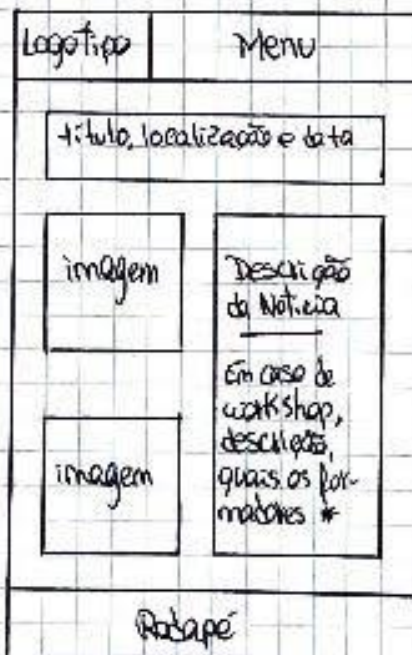 Logotipo
Menu
título, localização e data
imagem
Descrição
da Notícia
Em caso de
workshop,
descrição,
quais os for-
madores *
imagem
Rodapé